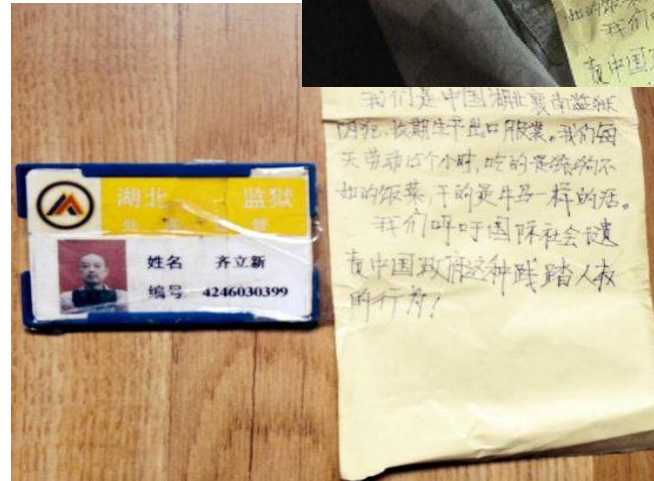 湖北 监狱
姓名 齐立新
编号 4246030399
我们是中国湖北襄南监狱
囚犯,长期生产出口服装。我们每
天劳动15个小时,吃的是猪狗不
如的饭菜,干的是牛马一样的活。
我们呼吁国际社会谴
责中国政府这种践踏人权
的行为!
如的饭菜
我们
责中国